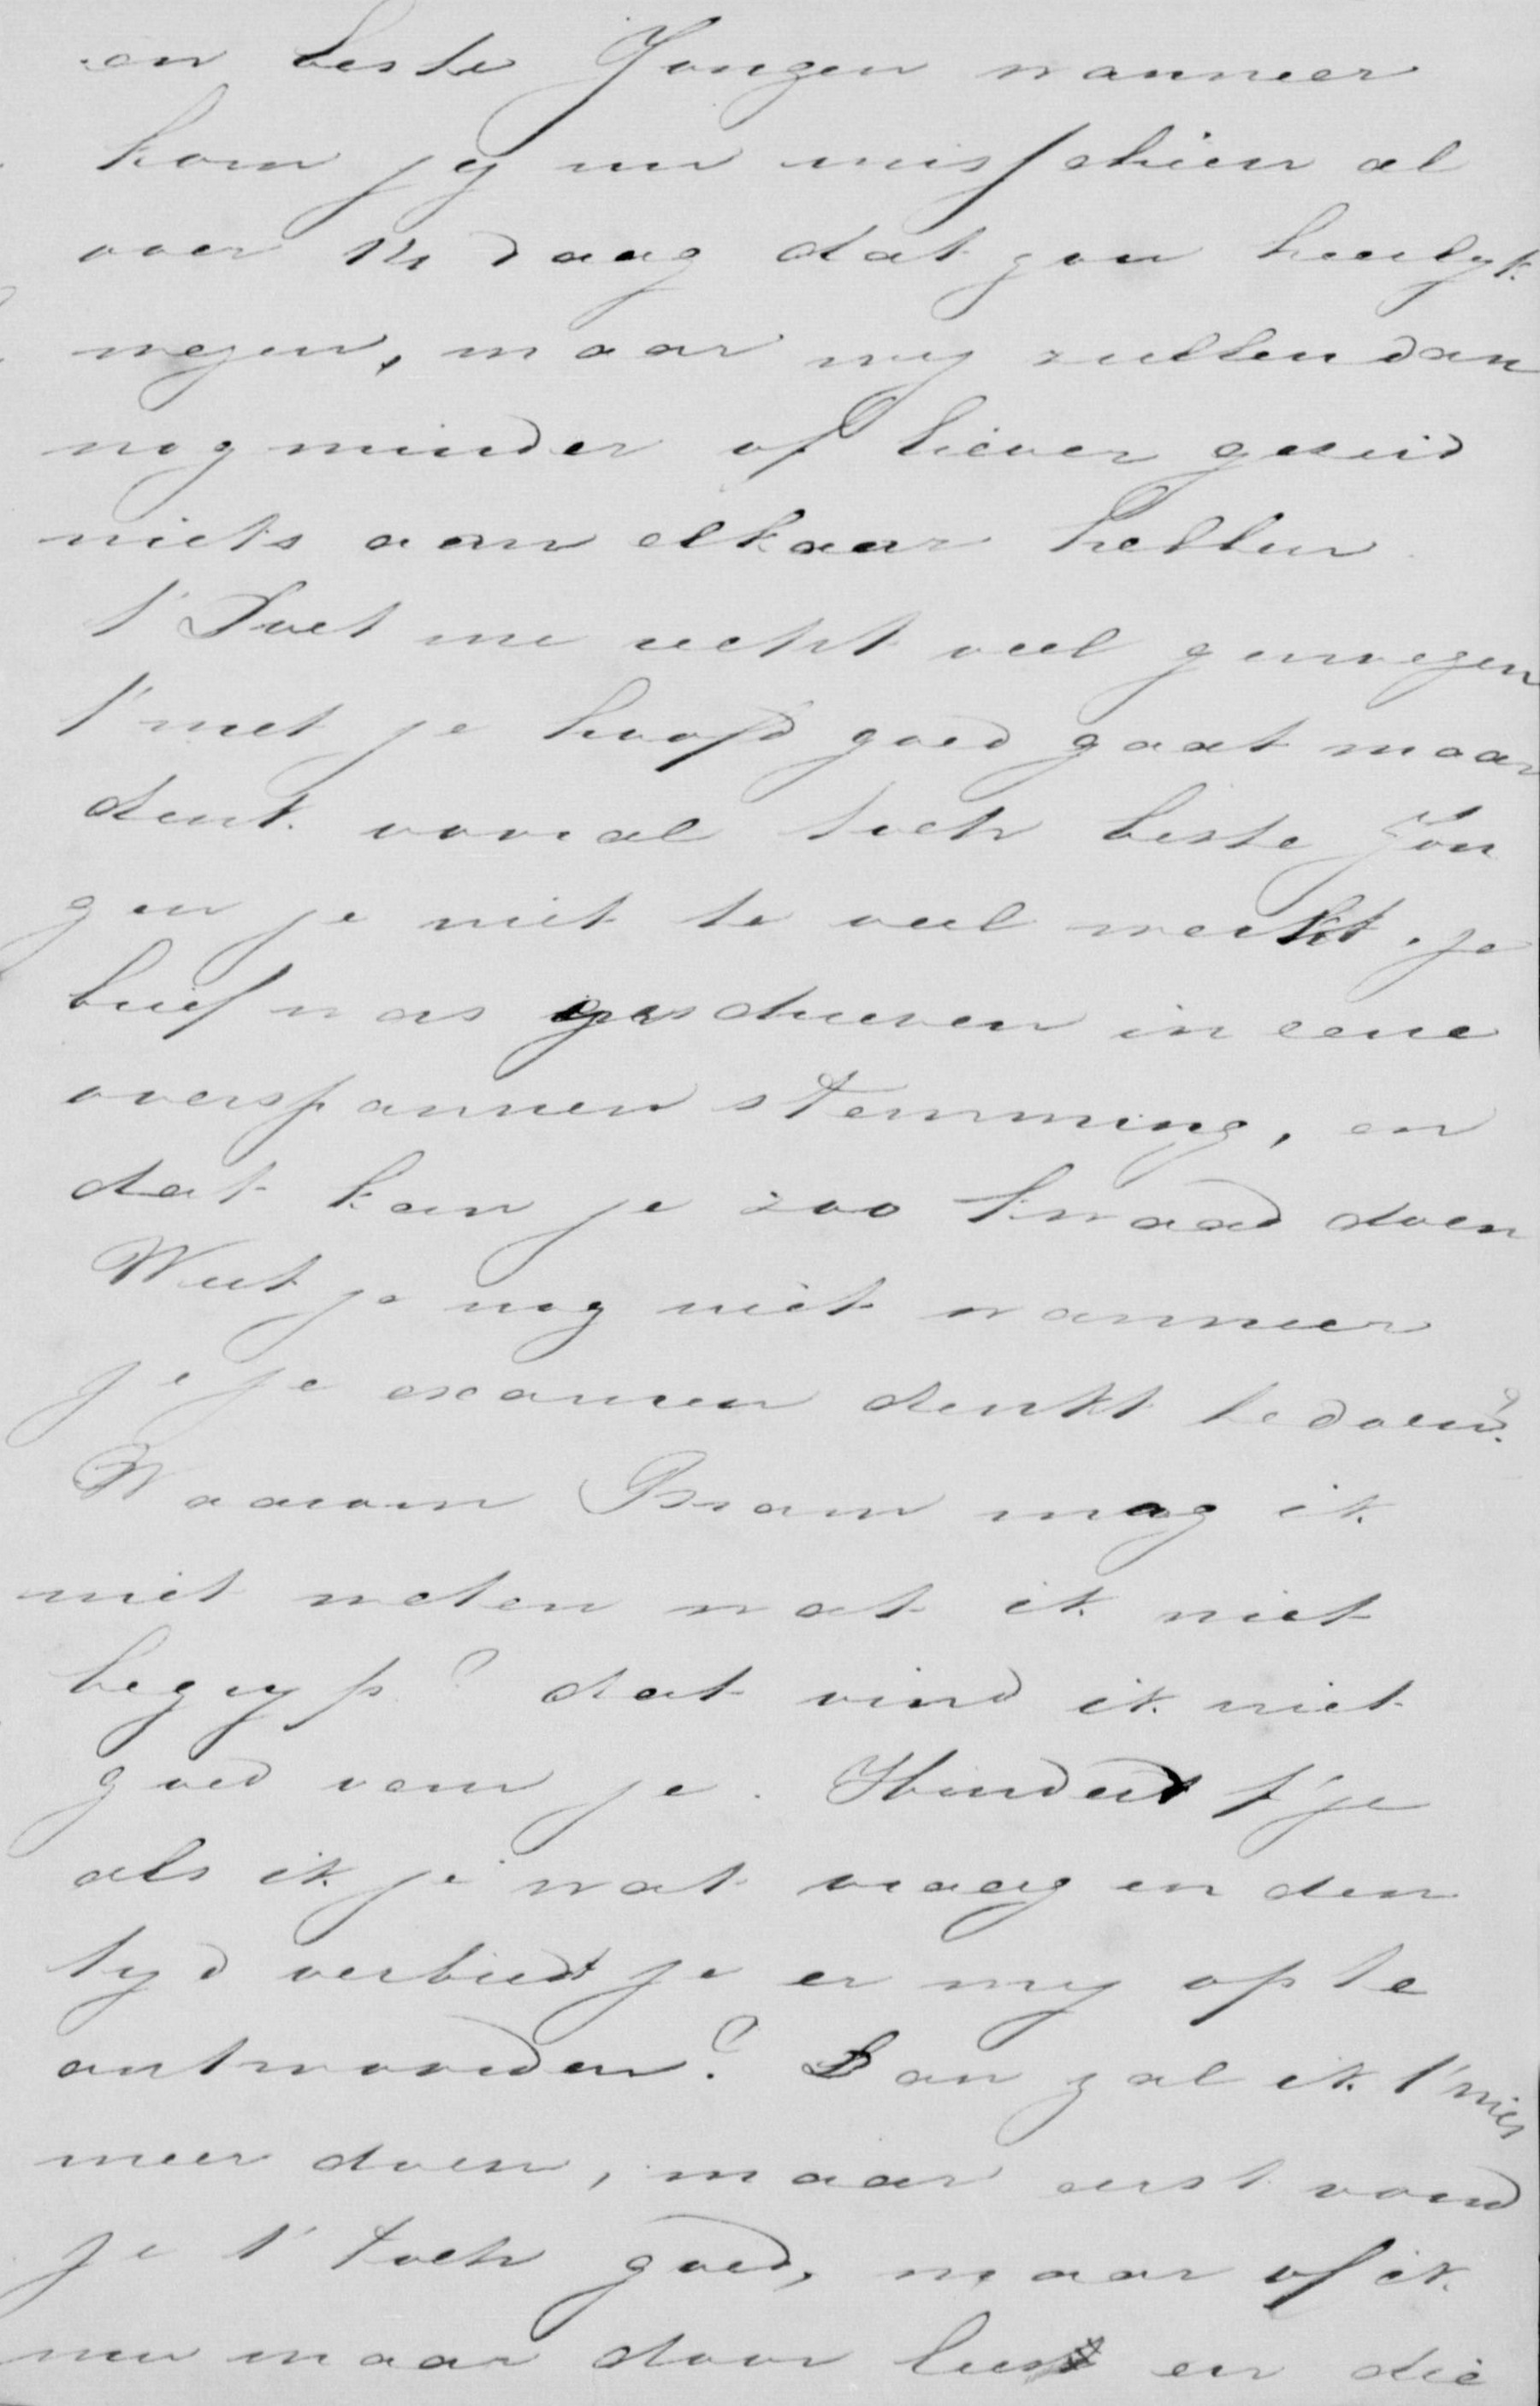 en beste Jongen wanneer
kom jy nu misschien al
over 14 daag dat zou heerlyk
wezen, maar wy zullen dan
nog minder of liever gezeid
niets aan elkaar hebben
t' Doet me recht veel genoegen
t' met je hoofd goed gaat maar
denk vooral toch beste Jon
gen je niet te veel werkt. je
brief was geschreven in eene
overspannen stemming, en
dat kan je zoo kwaad doen
Weet je nog niet wanneer
je je examen denkt te doen?
Waarom Bram mag ik
niet weten wat ik niet
begryp? dat vind ik niet
goed van je. Hindert t' je
als ik je wat vraag en den
tyd verbiedt je er my op te
antwoorden? Dan zal ik t' niet
meer doen, maar eerst vond
je t' toch goed, maar of ik
nu maar door en die